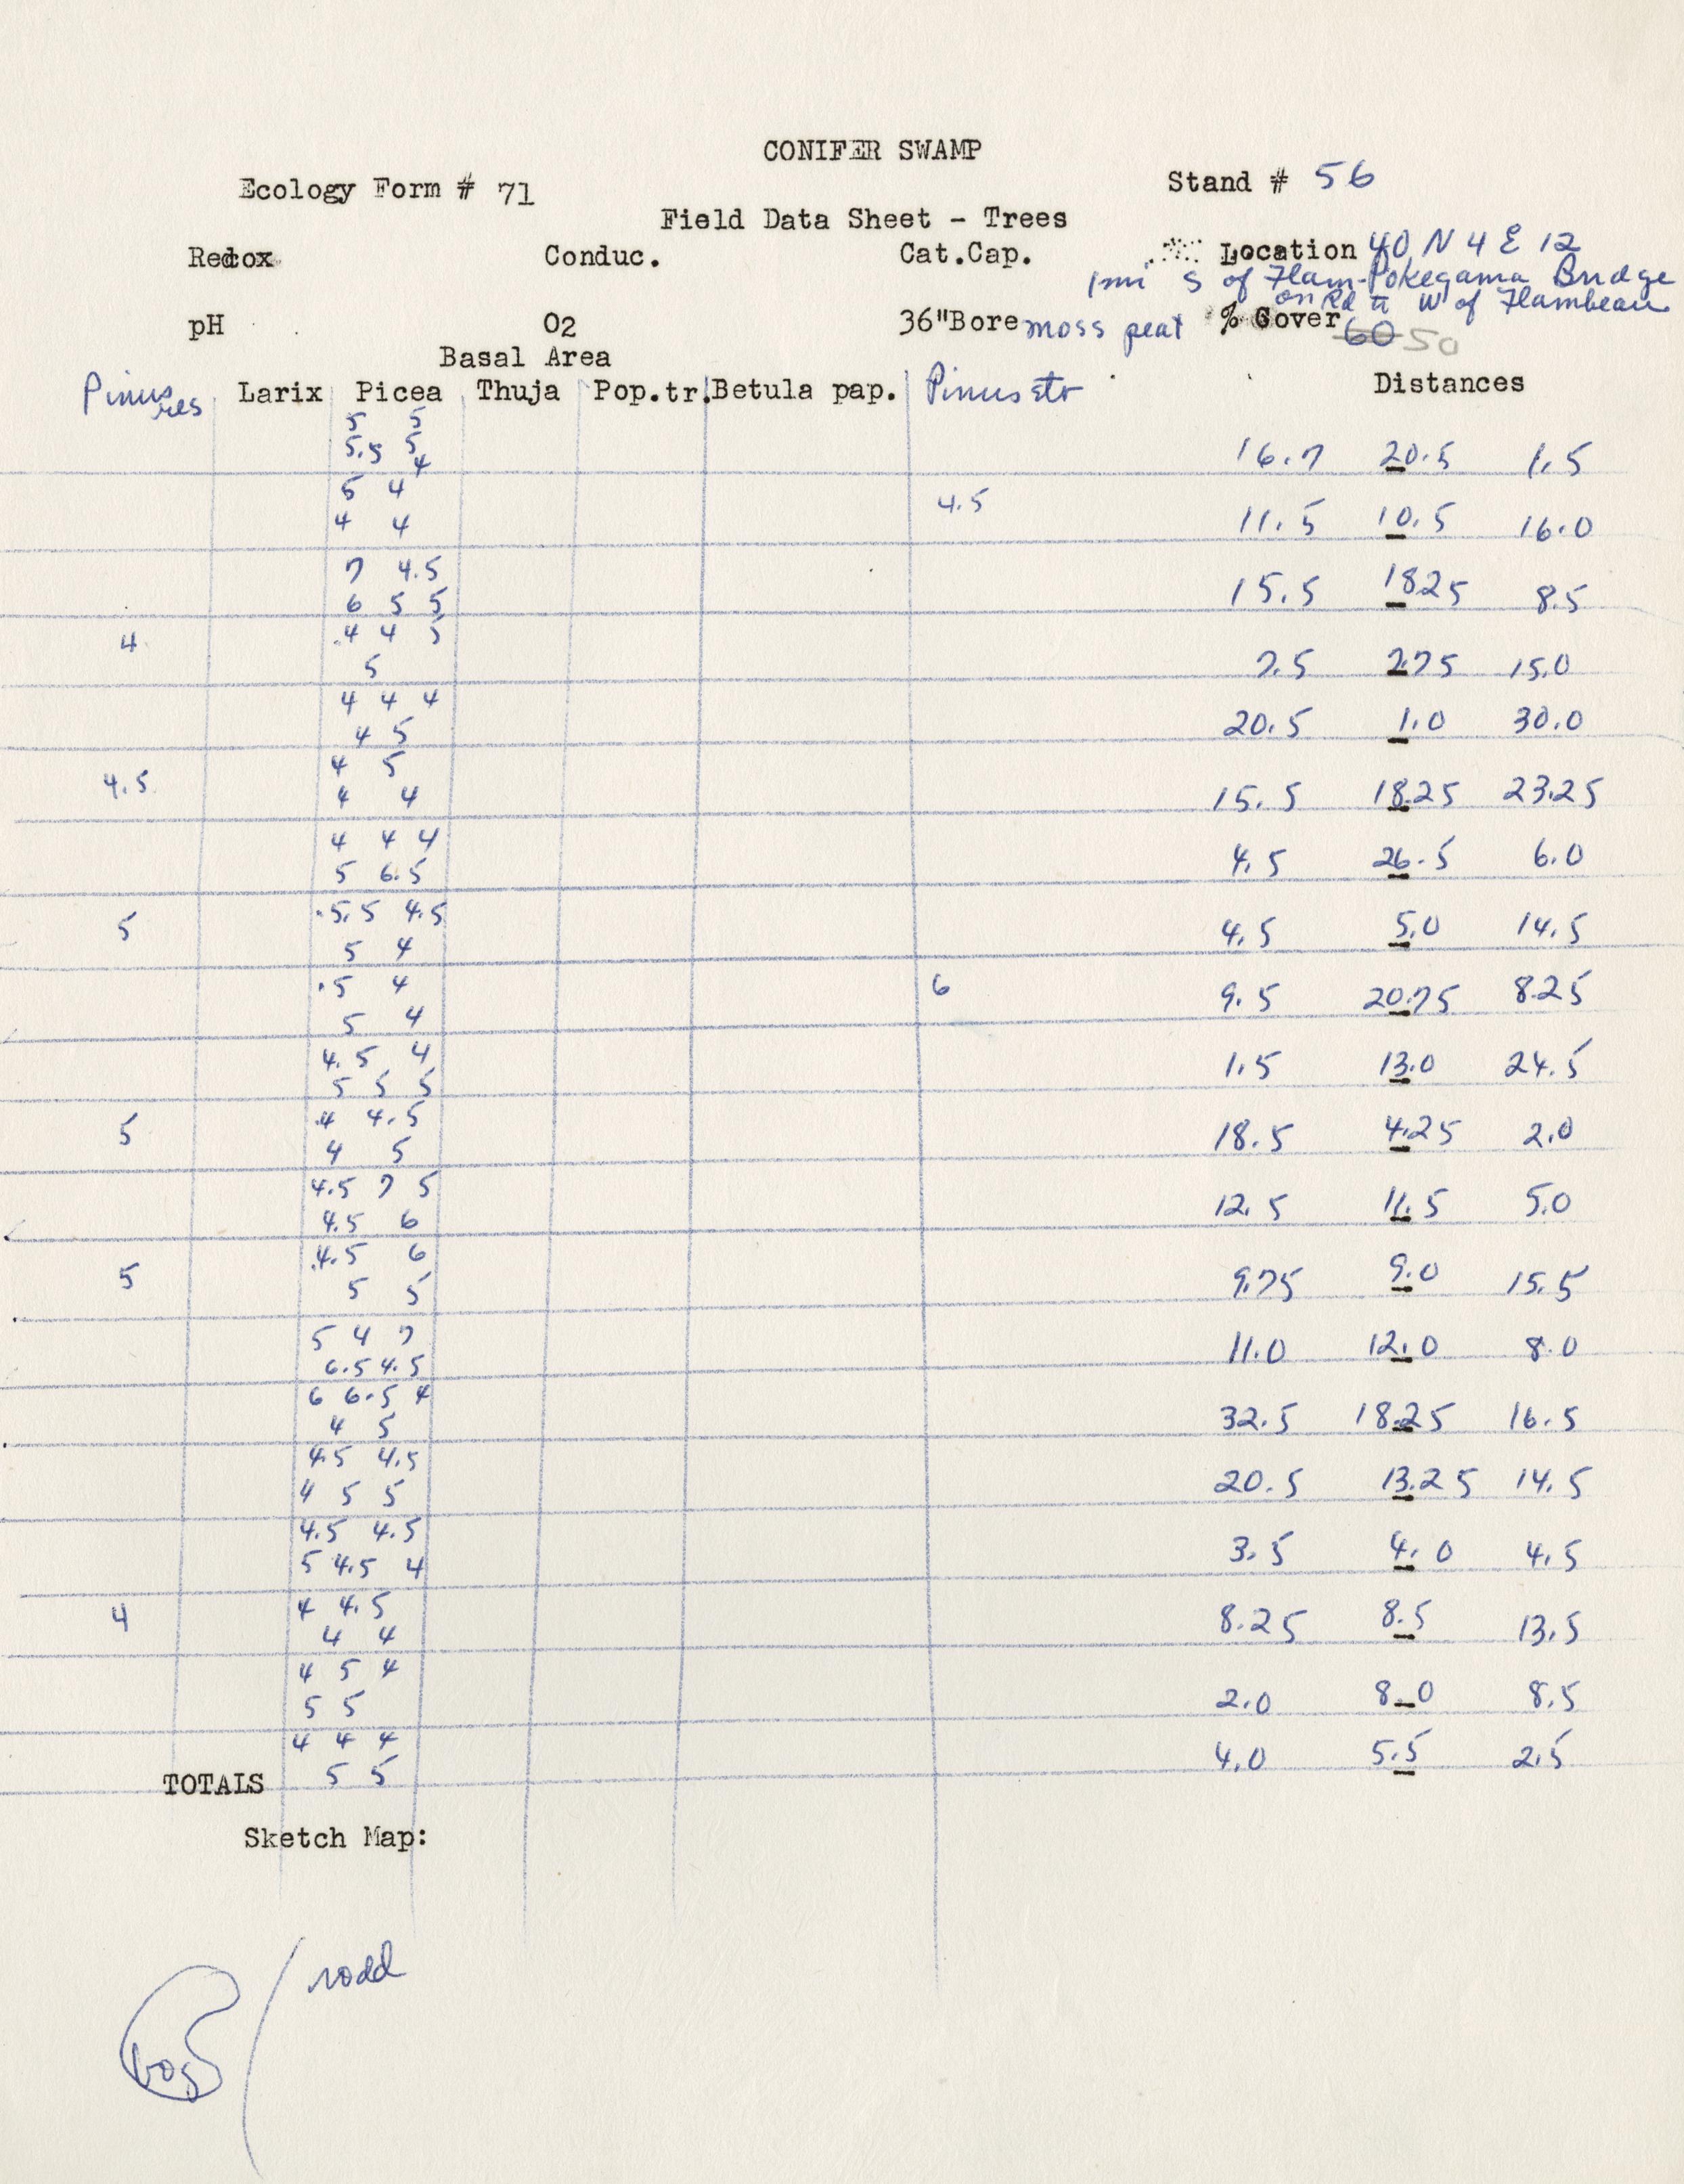 CONIFER SWAMP
Ecology Form # 71
Stand # 56
Field Data Sheet - Trees
Redox Conduc. Cat.Cap. Location 40 N 4 E 12
1 mi S of Flam-Pokegama Bridge
on Rd to W of Flambeau
pH O2 36"Bore moss peat % Cover 60 50
Basal Area
Pinus res Larix Picea Thuja Pop.tr. Betula pap. Pinus str Distances
5 5
5.5 5 4 16.7 20.5 1.5
5 4 4.5
4 4 11.5 10.5 16.0
7 4.5
6 5 5 15.5 18.25 8.5
4 4 4 5
5 7.5 2.75 15.0
4 4 4
4 5 20.5 1.0 30.0
4.5 4 5
4 4 15.5 18.25 23.25
4 4 4
5 6.5 4.5 26.5 6.0
5 5.5 4.5
5 4 4.5 5.0 14.5
5 4 6
5 4 9.5 20.75 8.25
4.5 4
5 5 5 1.5 13.0 24.5
5 4 4.5
4 5 18.5 4.25 2.0
4.5 7 5
4.5 6 12.5 11.5 5.0
5 4.5 6
5 5 9.75 9.0 15.5
5 4 7
6.5 4.5 11.0 12.0 8.0
6 6.5 4
4 5 32.5 18.25 16.5
4.5 4.5
4 5 5 20.5 13.25 14.5
4.5 4.5
5 4.5 4 3.5 4.0 4.5
4 4 4.5
4 4 8.25 8.5 13.5
4 5 4
5 5 2.0 8.0 8.5
4 4 4
5 5 4.0 5.5 2.5
TOTALS
Sketch Map:
rodd
bog